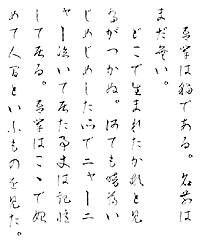 吾輩は猫である。名前は
まだ無い。
どこで生まれたかとんと見
当がつかぬ。何でも暗薄い
じめじめした所でニャーニ
ャー泣いて居た事丈は記憶
して居る。吾輩はここで始
めて人間といふものを見た。